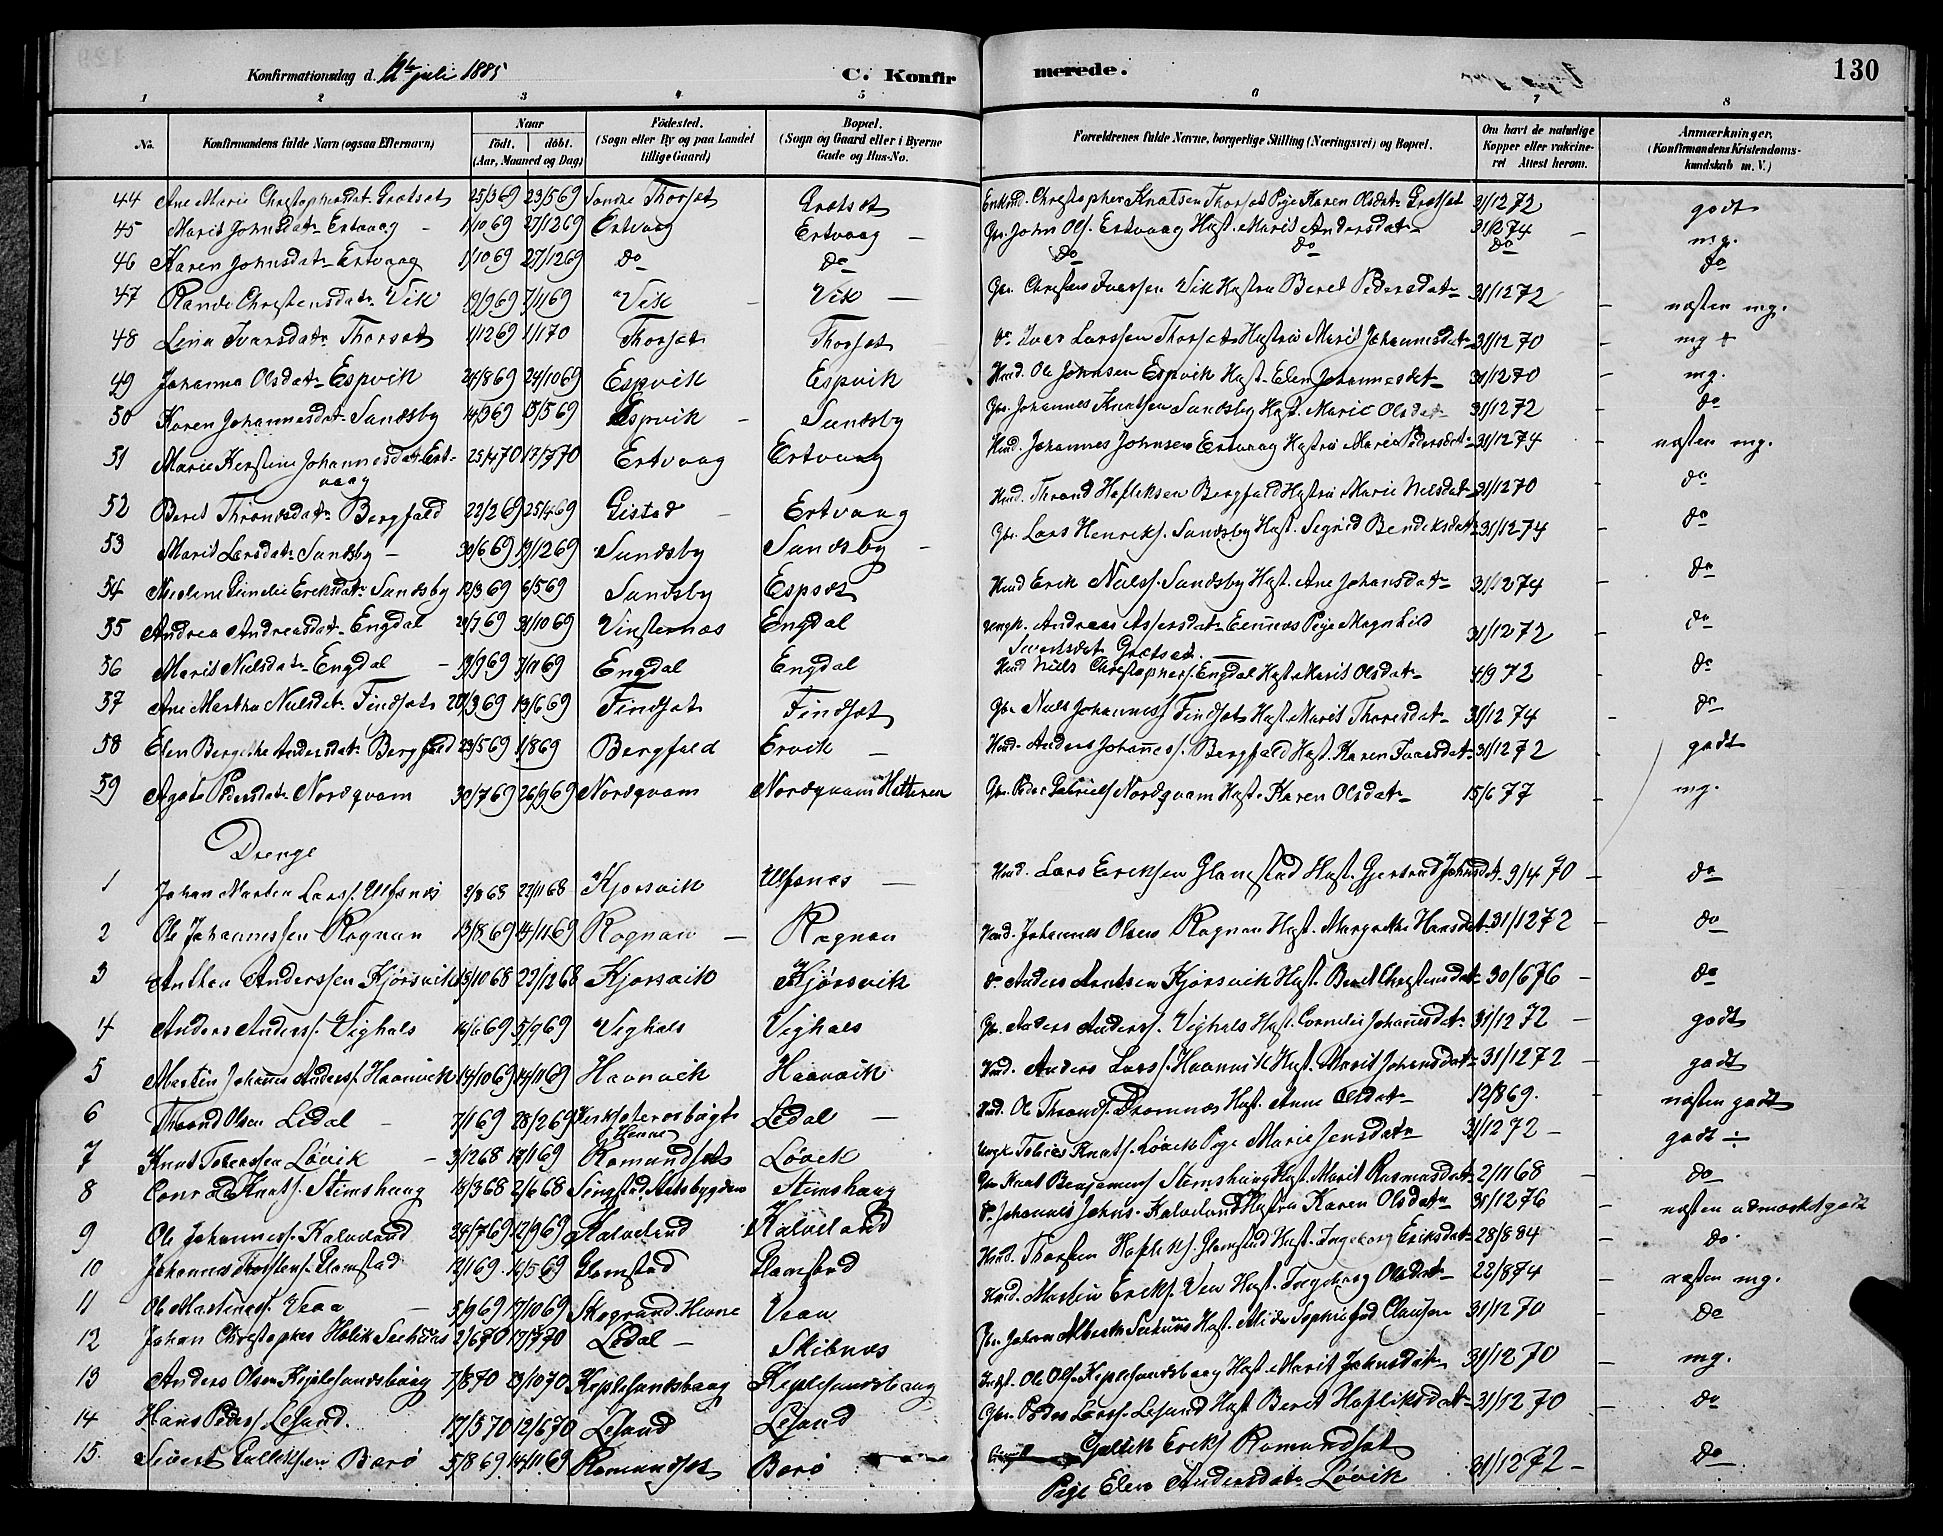 Konfirmationsdag d. 12te juli 1885 C. Konfirmerede. 130
1 2 3 4 5 6 7 8
No. Konfirmandens fulde Navn (ogsaa Efternavn) Naar født. døbt. (Aar, Maaned og Dag) Fødested. (Sogn eller By og paa Landet tillige Gaard) Bopæl. (Sogn og Gaard eller i Byerne Gade og Hus-No. Forældrenes fulde Navne, borgerlige Stilling (Næringsvei) og Bopæl. Om havt de naturlige Kopper eller vaccineret Attest herom. Anmærkninger. (Konfirmandens Kristendomskundskab m. V.)
44 Ane Marie Christophersdatr Grætset 25/3 69 23/5 69 Søndre Thorset Grætset Christopher Knutsen Thorset Pige Karen Olsdatr Grætset 31/12 72 godt
45 Marit Johnsdatr Ertvaag 1/10 69 27/12 69 Ertvaag Ertvaag Gbr. John Ols. Ertvaag Hust. Marit Andersdatr 31/12 74 mg.
46 Karen Johnsdatr Ertvaag 1/10 69 27/12 69 do do do do do do
47 Rande Christensdatr Vik 19/9 69 7/11 69 Vik Vik Gbr. Christen Ivarsen Vik Hustru Beret Pedersdatr 31/12 72 næsten mg.
48 Lina Ivarsdatr Thorset 1/12 69 1/1 70 Thorset Thorset do Iver Larssen Thorset Hustru Marit Johannesdatr 31/12 70 mg +
49 Johanna Olsdatr Espvik 24/8 69 24/10 69 Espvik Espvik Hmd. Ole Johnsen Espvik Hust. Elen Johannesdatr 31/12 70 mg.
50 Karen Johannesdatr Sandsby 14/3 69 15/5 69 Espvik Sandsby Gbr. Johannes Knutsen Sandsby Hust. Marit Olsdatr 31/12 72 do
51 Marie Kirstine Johannesdatr Ertvaag 25/4 70 17/7 70 Ertvaag Ertvaag Hmd. Johannes Johnsen Ertvaag Hustru Marie Pedersdatr 31/12 74 næsten mg.
52 Beret Throndsdatr Bergfald 22/2 69 25/4 69 Gistad Ertvaag Hmd. Thrond Hafliksen Bergfald Hustru Marie Nilsdatr 31/12 70 do
53 Marit Larsdatr Sandsby 30/6 69 19/12 69 Sandsby Sandsby Gbr. Lars Henriks. Sandsby Hust. Segrid Bendiksdatr 31/12 74 do
54 Eriksdatr Sandsby 12/3 69 6/5 69 Sandsby Espset Hmd Erik Nilss. Sandsby Hust. Ane Johansdatr 31/12 74 do
55 Andrea Andreasdatr Engdal 29/7 69 31/10 69 Vinsternæs Engdal Ungk. Andreas Pige Magnhild Sivertsdat Grætset. 31/12 72 do
56 Marit Nielsdatr Engdal 19/9 69 7/11 69 Engdal Engdal Hmd Niels Christophers. Engdal Hust. Marit Olsdatr 4/9 72 do
57 Ane Martha Nielsdatr Findset 20/3 69 13/6 69 Findset Findset Gbr Niels Johannes. Findset Hust. Marit Thoresdatr 31/12 74 do
58 Elen Bergithe Andersdatr Bergfald 23/5 69 1/8 69 Bergfald Ervik Hmd. Anders Johaness. Bergfald Hust. Karen Ivarsdatr 31/12 72 godt
59 Agate Pedersdatr Nordqvam 30/7 69 26/9 69 Nordqvam Nordqvam Gbr. Peder Gabriels Nordqvam Hust. Karen Olsdatr 15/6 77 mg.
Drenge
1 Johan Martin Larss. Ulfsnæs 2/8 68 22/11 68 Kjørsvik Ulfsnæs Hmd. Lars Eriksen Glamstad Hust. Gjertrud Johnsdat. 9/4 70 do
2 Ole Johannessen Rognan 13/8 69 14/11 69 Rognan Rognan Hmd. Johannes Olsen Rognan Hust. Margrethe Hansdatr 31/12 72 do
3 Anthon Anderssen Kjørsvik 13/10 68 27/12 68 Kjørsvik Kjørsvik do Anders Arntsen Kjørsvik Hust. Beret Christensdatr 30/6 76 do
4 Anders Anderss. Vighals 16/6 69 5/9 69 Vighals Vighals Gbr. Anders Anderss. Vighals Hust. Cornelie Johannesdatr 31/12 72 godt
5 Martin Johannes Anderss. Haavvik 14/10 69 14/11 69 Haavvik Haavvik Hmd. Anders Larss. Haavvik Hust. Marit Johansdatr 31/12 72 godt
6 Thrond Olsen Ledal 7/1 69 28/2 69 Kirksæterørbugt i Hevne Ledal Hmd. Ole Thronds. Dromnæs Hust. Anne Olsdatr 12/8 69. næsten godt
7 Knut Tobiassen Løvik 3/12 68 17/1 69 Romundset Løvik Ungk Tobias Knuts. Løvik Pige Marie Jensdatr 31/12 72 godt ÷
8 Conrad Knuts. Stemshaug 18/3 68 2/6 68 Stemshaug Gbr Knut Benjamins Stemshaug Hust. Marit Rasmusdatr 2/11 68 do
9 Ole Johanness. Kalveland 29/7 69 12/9 69 Kalveland Kalveland do Johannes Johns. Kalveland Hustru Karen Olsdatr 31/12 76 næsten udmærket godt
10 Johannes Thorstens. Glamstad 12/1 69 16/5 69 Glamstad Glamstad Hmd. Thorsten Hafliks. Glamstad Hust. Ingeborg Eriksdatr 28/8 84 do
11 Ole Martinus. Veaa 5/9 69 17/10 69 Hevne Veaa Hmd. Martin Eriks. Vea Hust. Ingeborg Olsdatr 22/8 74 næsten mg.
12 Johan Christopher Holik Seehuus 2/6 70 17/7 70 Ledal Skibnæs Gbr. Johan Albert Seehuus Hust. Sophie fød Clausen 31/12 70 do
13 Anders Olsen Keplesandsbaag 7/8 70 23/10 70 Keplesandsbaag Keplesandsbaag Indst. Ole Ols. Keplesandsbaag Hust. Marit Johnsdatr 31/12 70 mg.
14 Hans Peders. Lesund. 17/5 70 12/6 70 Lesund Lesund Gbr. Peder Larss. Lesund Hust. Beret Hafliksdatr 31/12 70 do
15. Sivert Gulliksen Barø 5/8 69 14/11 69 Romundset Barø Gullik Eriks Romundset Pige Elen Andersdatr Løvik 31/12 72 do